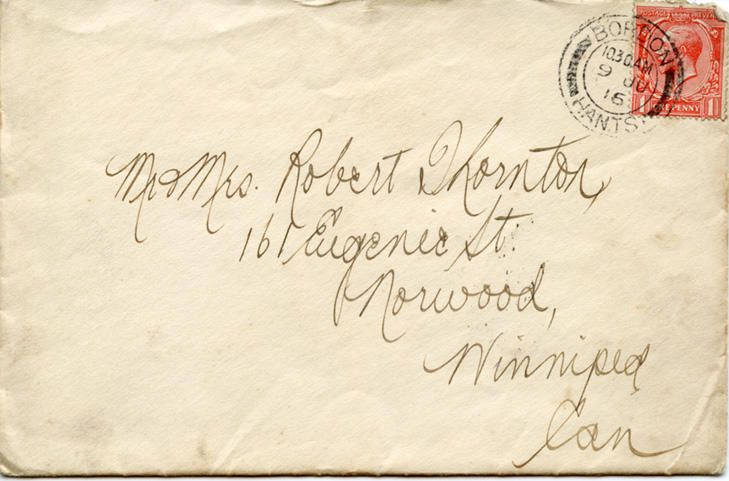 POSTAGE REVENUE
BORDON
10.30 AM
9 JU
16
HANTS.
1 ONE PENNY 1
Mr & Mrs. Robert Thornton,
161 Eugenie St.
Norwood,
Winnipeg
Can